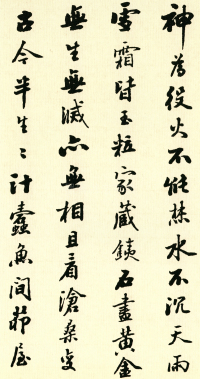 神為役火不能焚水不沉天雨
雪霜皆玉粒家藏銕石盡黃金
無生無滅亦無相且看滄桑變
古今半生〻計蠹魚間茆屋